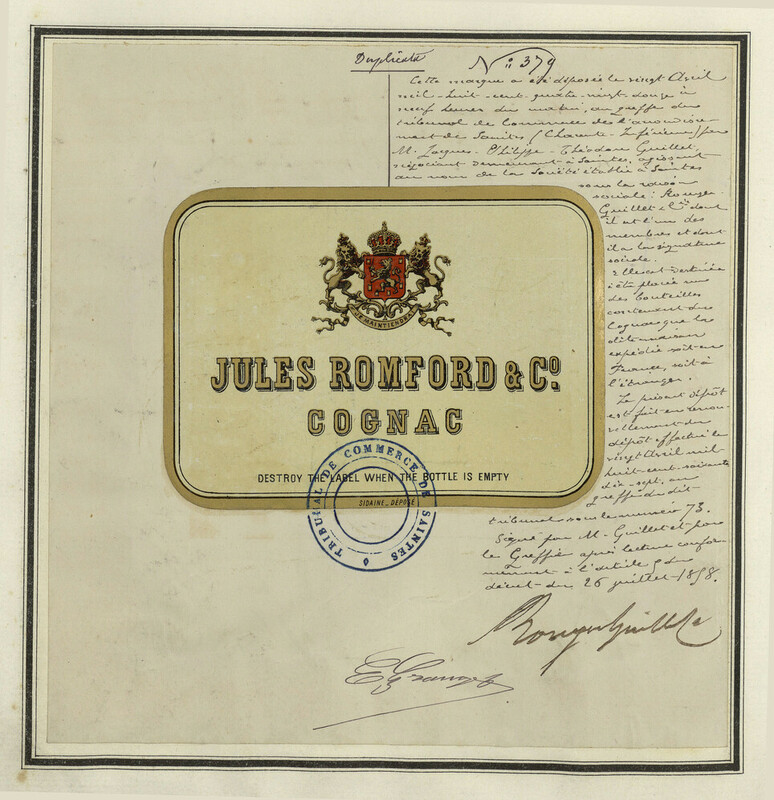 Duplicata
N° 379
Cette marque a été déposée le vingt Avril
mil-huit-cent-quatre-vingt-douze à
neuf heures du matin, au greffe du
tribunal de Commerce de l'arrondisse-
ment de Saintes (Charente-Inférieure) par
M. Jacques-Philippe-Théodore Guillet,
négociant demeurant à Saintes, agissant
au nom de la Société établie à Saintes
sous la raison
sociale: Rouyer
Guillet & Cie dont
il est l'un des
membres et dont
il a la signature
sociale.
Elle est destinée
à être placée sur
des bouteilles
contenant du
Cognac que la
dite maison
expédie soit en
France, soit à
l'étranger.
Le présent dépôt
est fait en renou-
vellement du
dépôt effectué le
vingt Avril mil
huit-cent-soixante
dix-sept, au
greffe du dit
tribunal sous le numéro 73.
Signé par M. Guillet et par
le Greffier après lecture confor-
mément à l'article 9 du
décret du 26 juillet 1858.
JE MAINTIENDRAI
JULES ROMFORD & Co.
COGNAC
DESTROY THE LABEL WHEN THE BOTTLE IS EMPTY
SIDAINE, DÉPOSÉ
TRIBUNAL DE COMMERCE DE SAINTES
Rouyer Guillet & Co